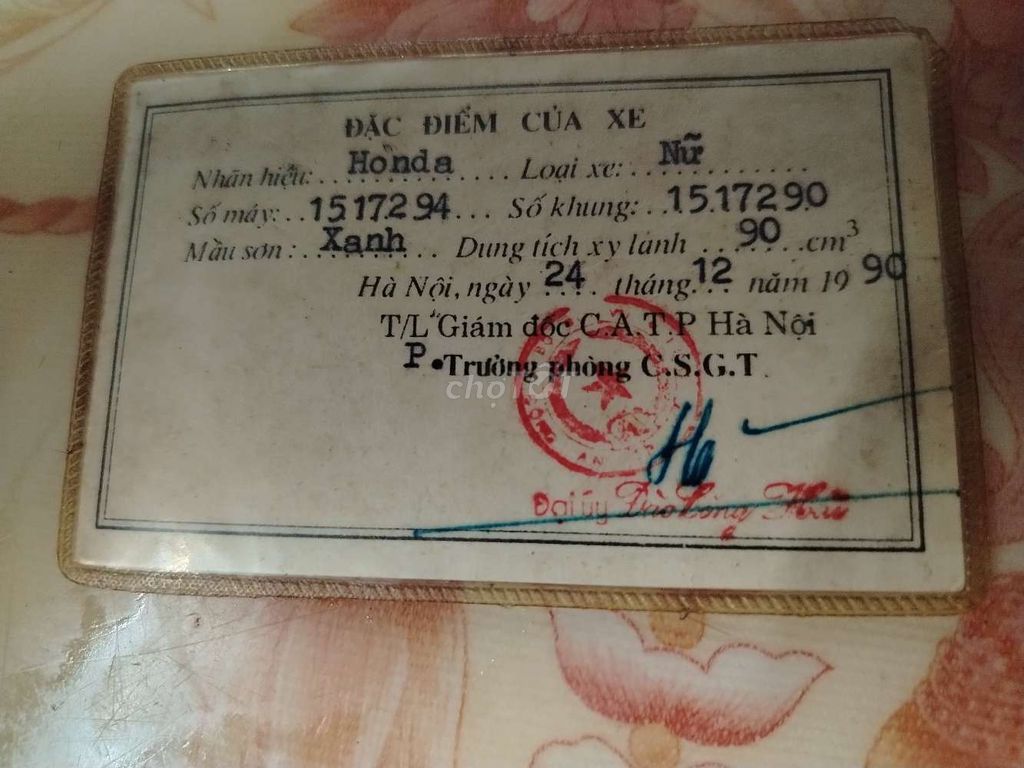 ĐẶC ĐIỂM CỦA XE
Nhãn hiệu: Honda Loại xe: Nữ
Số máy: 1517294 Số khung: 1517290
Mầu sơn: Xanh Dung tích xy lanh 90 cm³
Hà Nội, ngày 24 tháng 12 năm 1990
T/L Giám đốc C.A.T.P Hà Nội
P. Trưởng phòng C.S.G.T
chợTỐT
Đại úy Đào